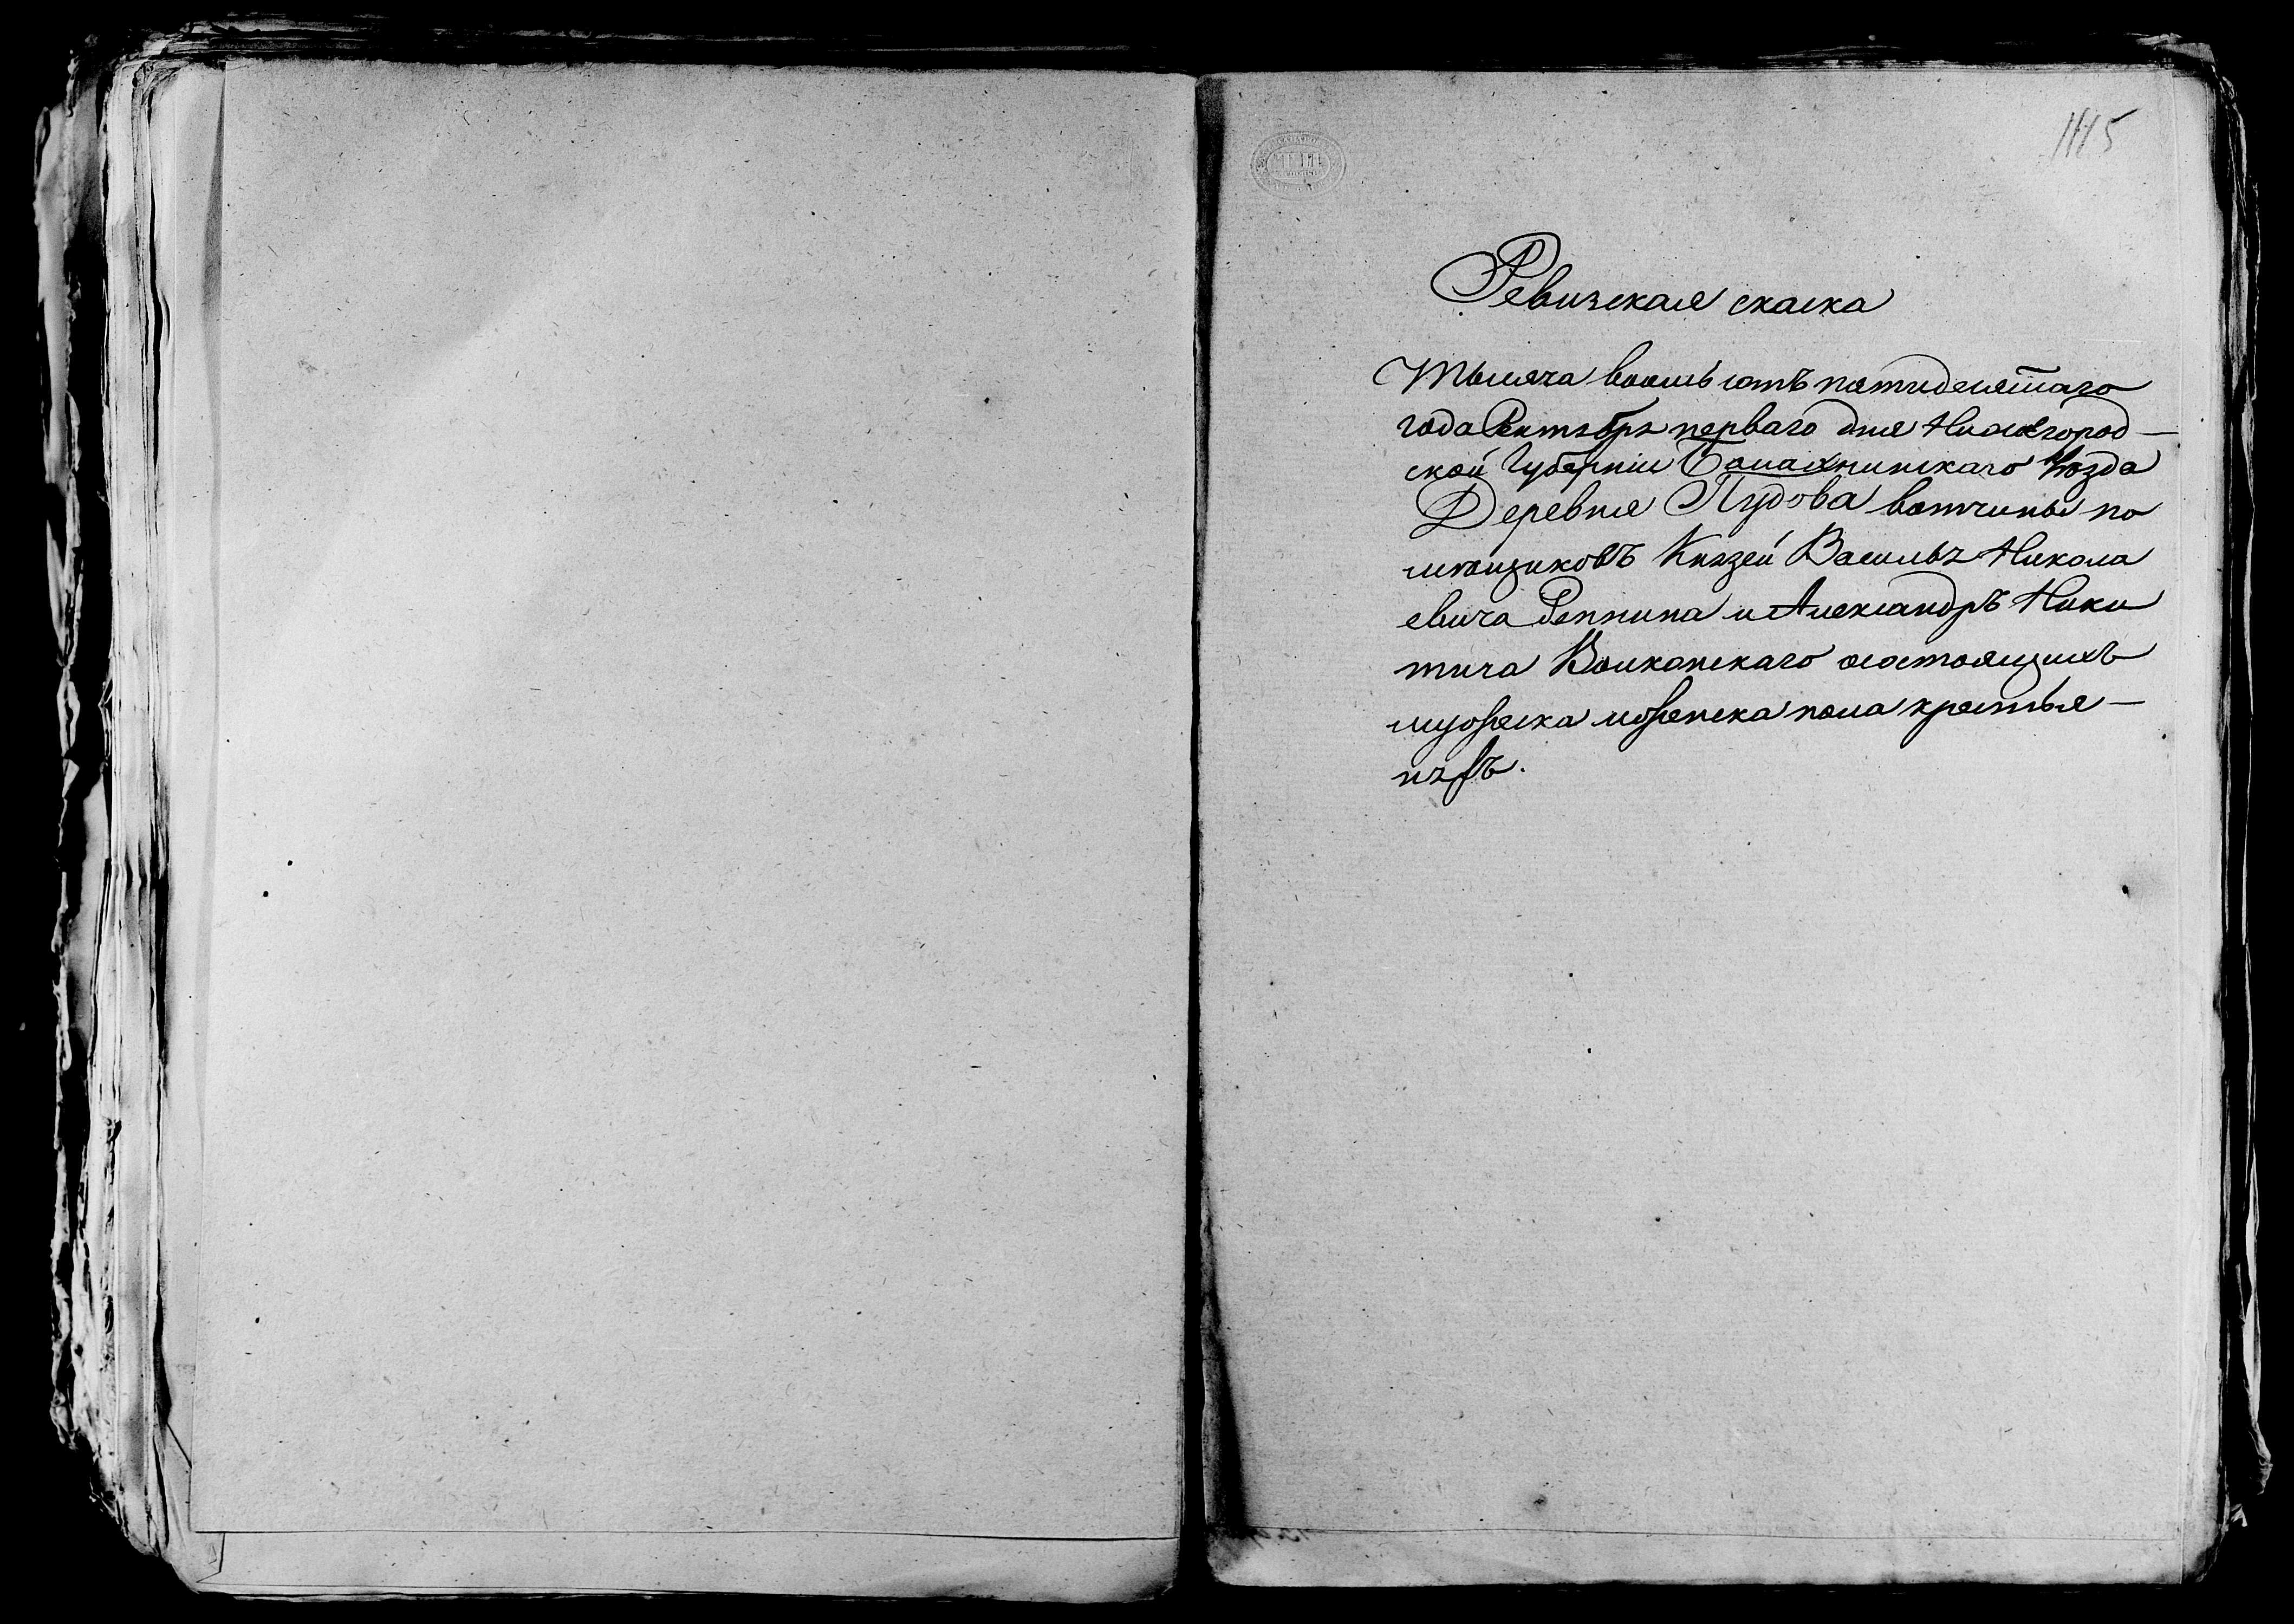 1115
Ревизская скаска
Тысяча восемь сотъ пятидесятаго
года Октябрь перваго дня Нижегород—
ской Губерніи Балахнинскаго Уѣзда
Деревня Пудова вотчины по
мѣщиковъ Князей Василья Никола
евича Репнина и Александръ Ники
тича Волконскаго состоящихъ
мужеска и женска пола крестья—
няхъ.